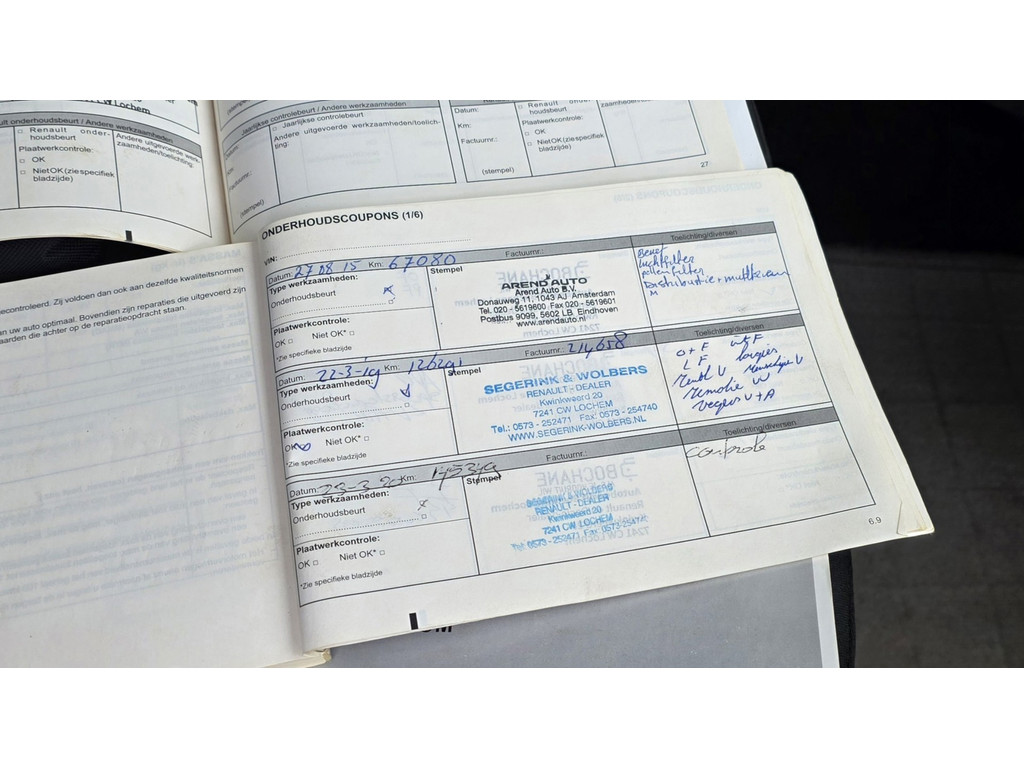 LW Lochem
ult onderhoudsbeurt / Andere werkzaamheden
□ Renault onder-
houdsbeurt
Plaatwerkcontrole:
□ OK
□ Niet OK (zie specifiek
bladzijde)
Andere uitgevoerde werk-
zaamheden/toelichting:
Jaarlijkse controlebeurt / Andere werkzaamheden
□ Jaarlijkse controlebeurt
Andere uitgevoerde werkzaamheden/toelich-
ting:
Factuurnr.:
(stempel)
Datum:
Km:
Factuurnr.:
(stempel)
□ Renault onder-
houdsbeurt
Plaatwerkcontrole:
□ OK
□ Niet OK (zie specifiek
bladzijde)
zaamheden/toelichting:
27
econtroleerd. Zij voldoen dan ook aan dezelfde kwaliteitsnormen
an uw auto optimaal. Bovendien zijn reparaties die uitgevoerd zijn
aarden die achter op de reparatieopdracht staan.
ONDERHOUDSCOUPONS (1/6)
VIN:
Datum: 27 08 15 Km: 67080 Factuurnr.: Toelichting/diversen
Type werkzaamheden:
Onderhoudsbeurt □
Plaatwerkcontrole:
OK □ Niet OK* □
*Zie specifieke bladzijde
Stempel
AREND AUTO
Arend Auto B.V.
Donauweg 11, 1043 AJ Amsterdam
Tel. 020 - 5619600 Fax 020 - 5619601
Postbus 9099, 5602 LB Eindhoven
www.arendauto.nl
Beurt
Luchtfilter
pollenfilter
Distributie + multiriem
Datum: 22-3-19 Km: 126291 Factuurnr.: 214658 Toelichting/diversen
Type werkzaamheden:
Onderhoudsbeurt □
Plaatwerkcontrole:
OK Niet OK* □
*Zie specifieke bladzijde
Stempel
SEGERINK & WOLBERS
RENAULT - DEALER
Kwinkweerd 20
7241 CW LOCHEM
Tel.: 0573 - 252471 Fax: 0573 - 254740
WWW.SEGERINK-WOLBERS.NL
O + F
LF
V + A
Datum: 23-3-20 Km: Factuurnr.: Toelichting/diversen
Type werkzaamheden:
Onderhoudsbeurt □
Plaatwerkcontrole:
OK □ Niet OK* □
*Zie specifieke bladzijde
Stempel
SEGERINK & WOLBERS
RENAULT - DEALER
Kwinkweerd 20
7241 CW LOCHEM
Tel. 0573 - 252471 Fax 0573-254740
controle
6.9